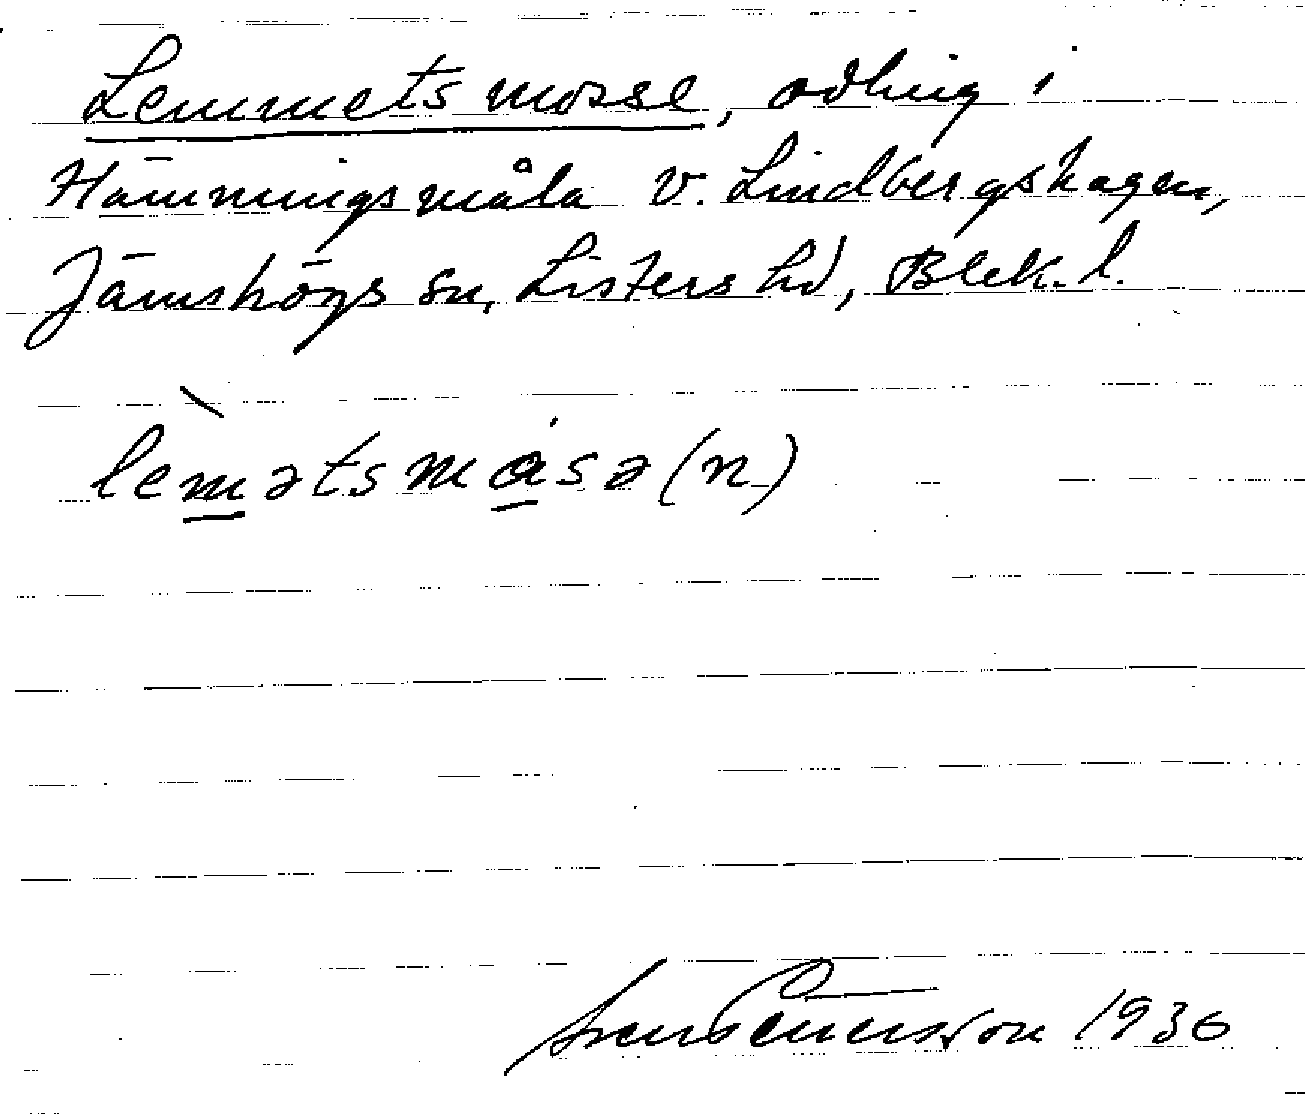 Lemmets mosse, odling i
Hämmingsmåla v. Lindbergshagen,
Jämshögs sn, Listers hd, Blek. l.
lemətsmåsə(n)
Sven Benersson 1936